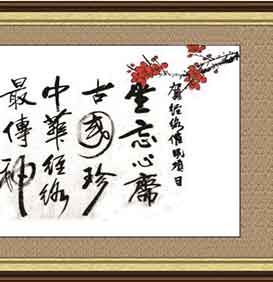 賀經絡催眠項目
坐忘心齋
古國珍
中華經絡
最傳神